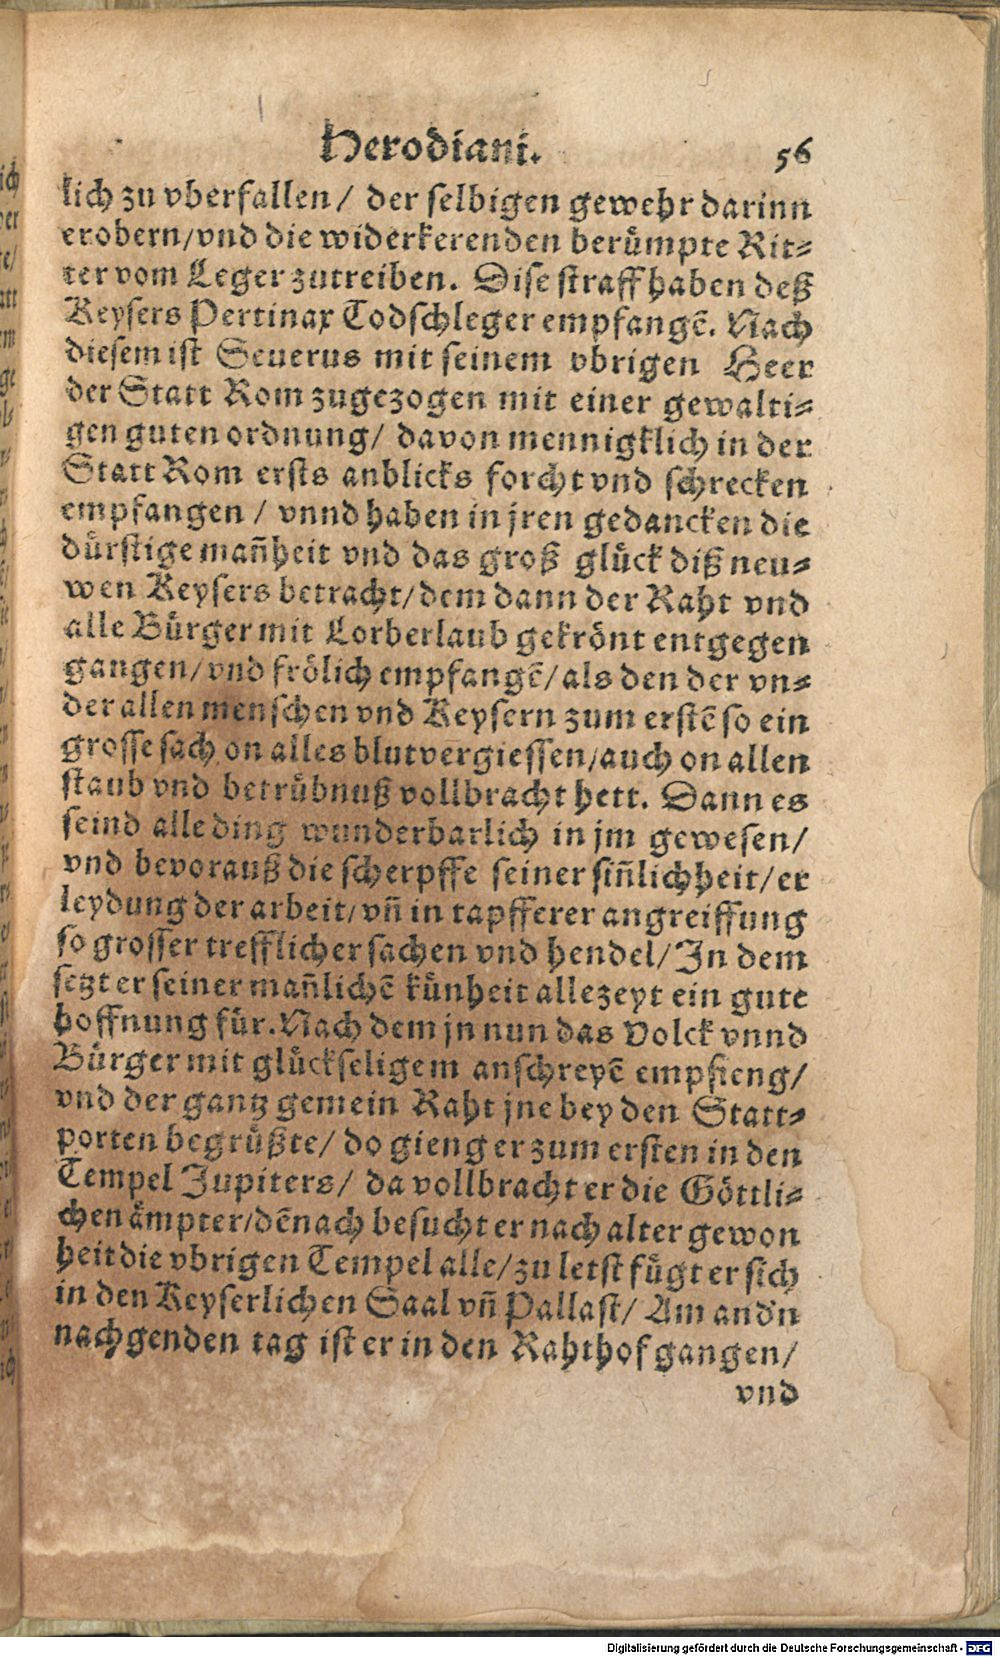 Herodiani. 56
lich zu vberfallen / der selbigen gewehr darinn
erobern/vnd die widerkerenden berümpte Rit⸗
ter vom Leger zutreiben. Dise straff haben deß
Keysers Pertinax Todschleger empfangē. Nach
diesem ist Seuerus mit seinem vbrigen Heer
der Statt Rom zugezogen mit einer gewalti⸗
gen guten ordnung/ davon mennigklich in der
Statt Rom ersts anblicks forcht vnd schrecken
empfangen / vnnd haben in jren gedancken die
dürstige mañheit vnd das groß glück diß neu⸗
wen Keysers betracht/dem dann der Raht vnd
alle Bürger mit Lorberlaub gekrönt entgegen
gangen/vnd frölich empfangē/als den der vn⸗
der allen menschen vnd Keysern zum erstē so ein
grosse sach on alles blutvergiessen/auch on allen
staub vnd betrübnuß vollbracht hett. Dann es
seind alle ding wunderbarlich in jm gewesen/
vnd bevorauß die scherpffe seiner siñlichheit/er
leydung der arbeit/vñ in tapfferer angreiffung
so grosser trefflicher sachen vnd hendel/In dem
setzt er seiner mañlichē künheit allezeyt ein gute
hoffnung für. Nach dem jn nun das Volck vnnd
Bürger mit glückseligem anschreyē empfieng/
vnd der gantz gemein Raht jne bey den Statt⸗
porten begrüßte/ do gieng er zum ersten in den
Tempel Jupiters/ da vollbracht er die Göttli⸗
chen ämpter/dēnach besucht er nach alter gewon
heit die vbrigen Tempel alle/zu letst fügt er sich
in den Keyserlichen Saal vñ Pallast/ Am and'n
nachgenden tag ist er in den Rahthof gangen/
vnd
Digitalisierung gefördert durch die Deutsche Forschungsgemeinschaft - DFG